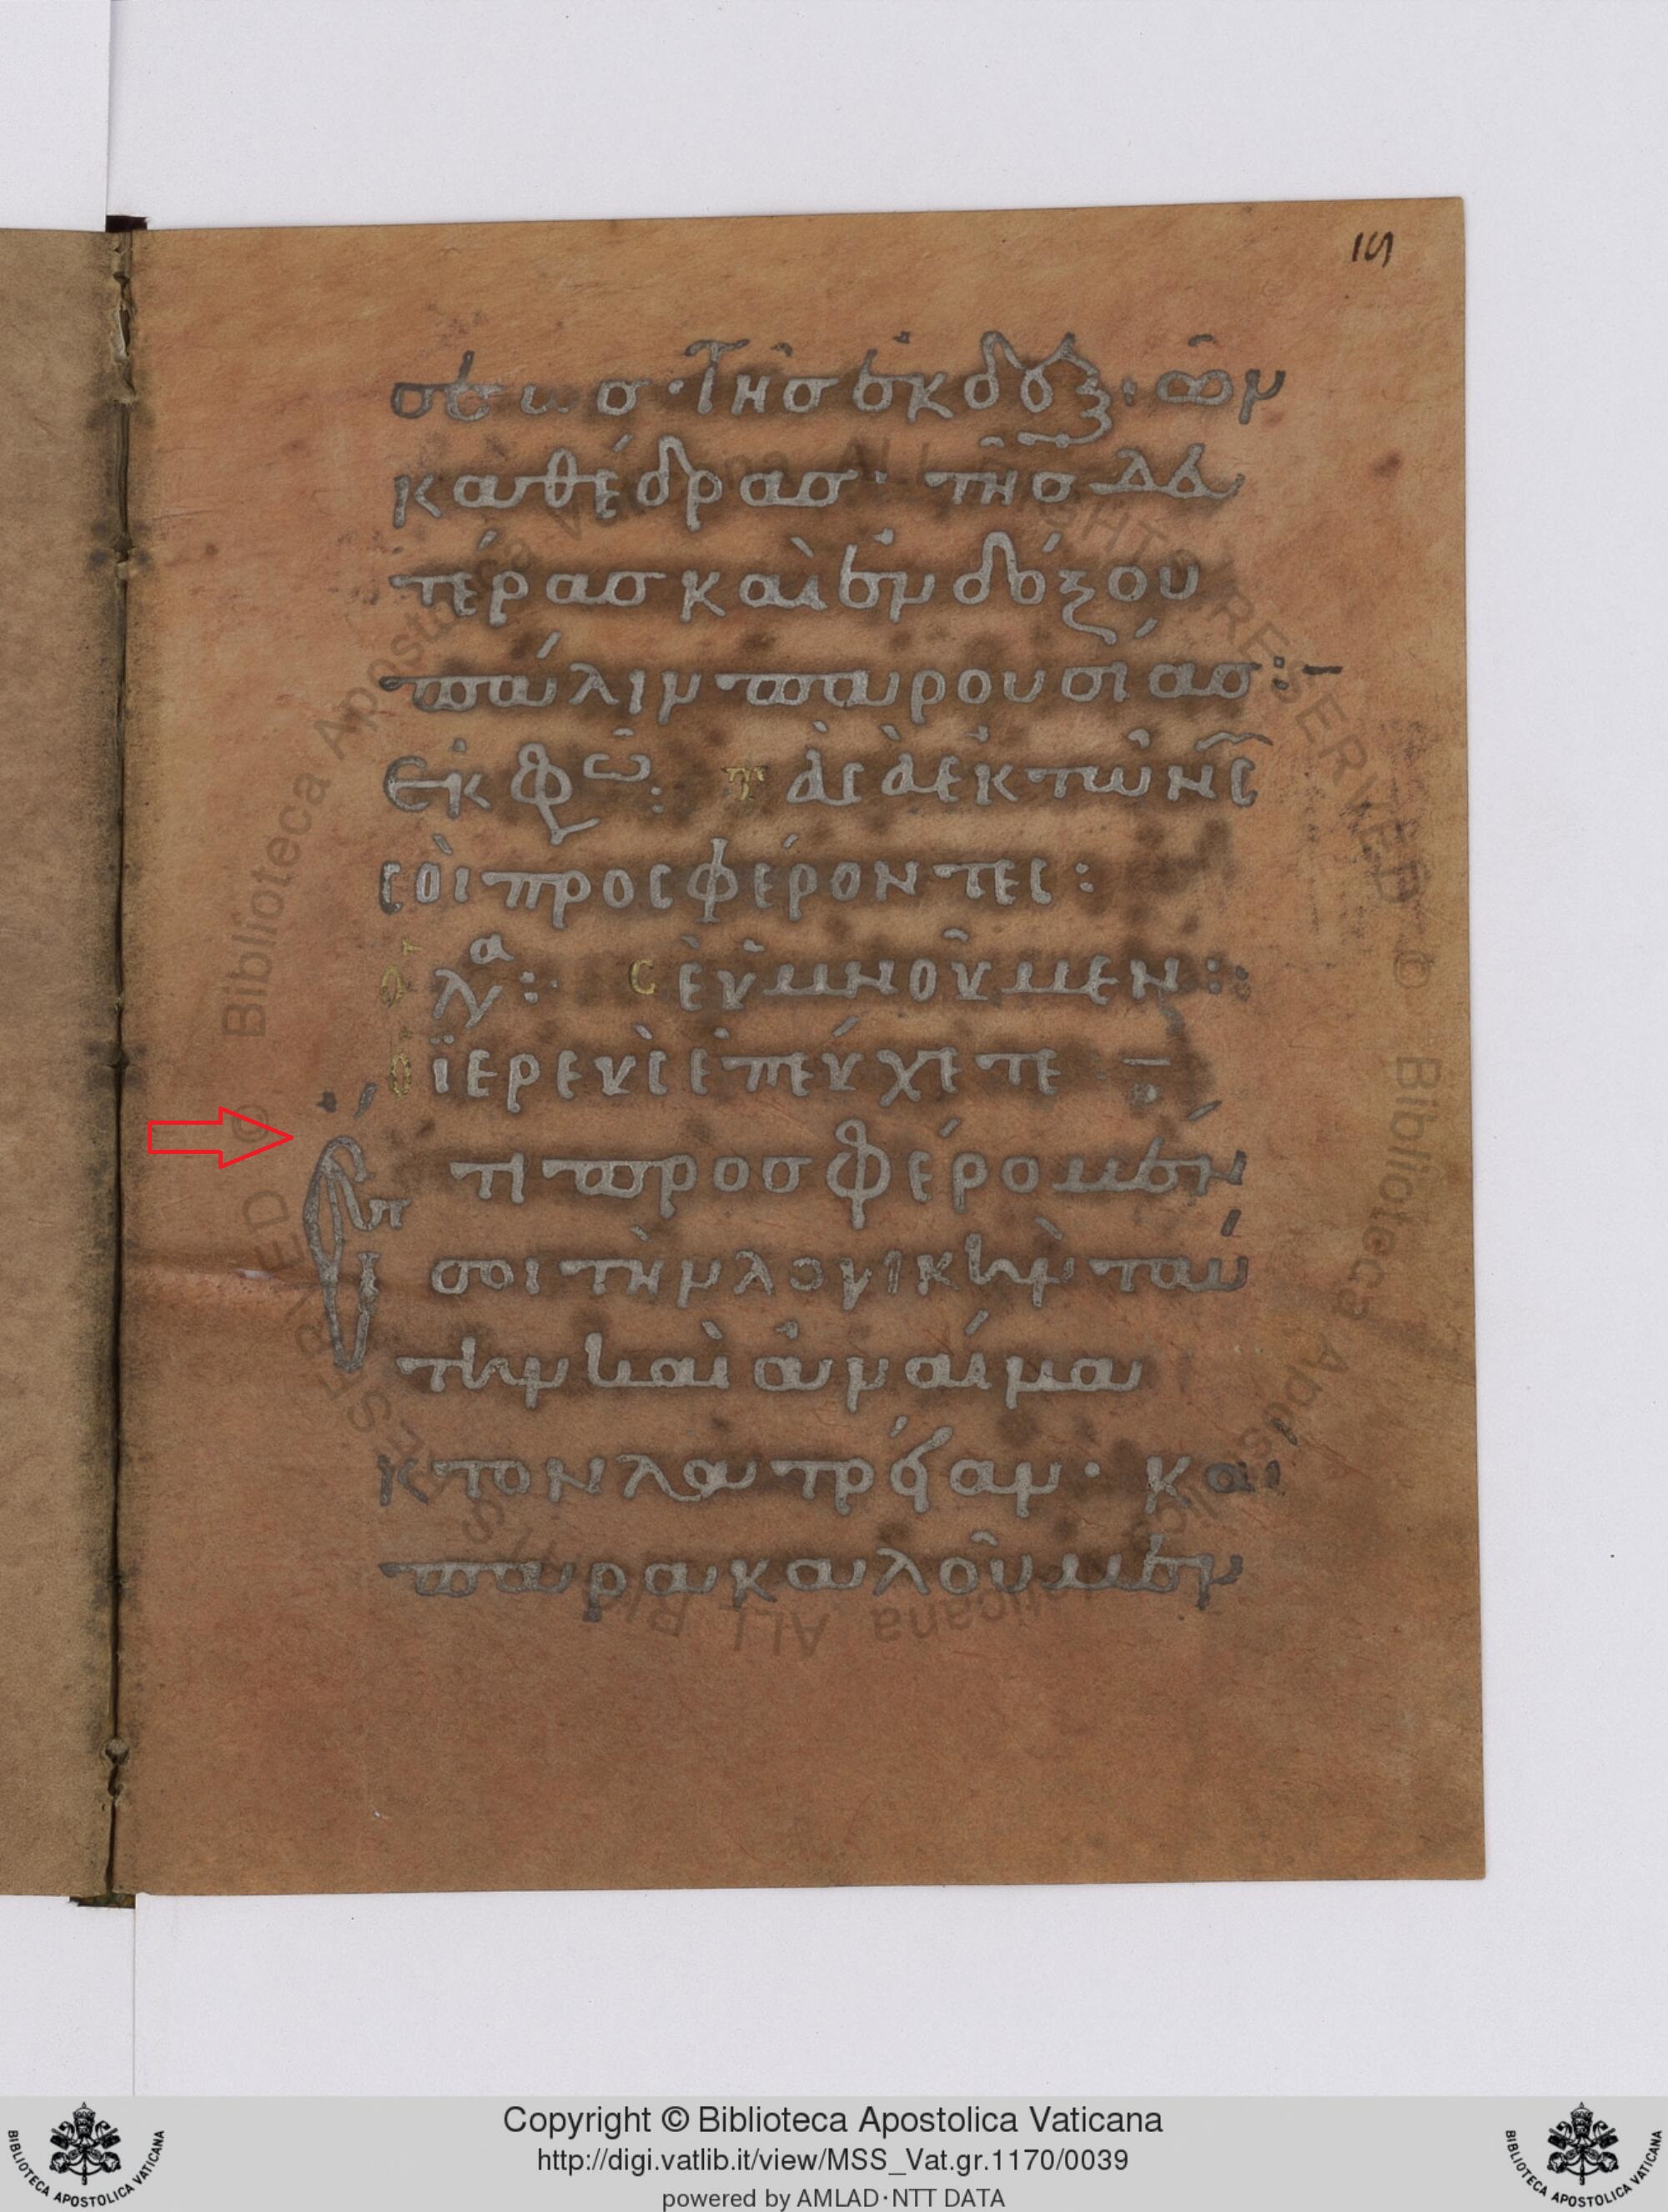 σεως· τῆς ἐκ δεξ: ῶν
καθέδρας· τῆς δευ
τέρας καὶ ἐνδόξου
πάλιν παρουσίας:-
ἐκφω: τὰ σὰ ἐκ τῶν σ
σοὶ προσφέροντες:
ὁ λα: σὲ ὑμνοῦμεν:
ὁ ϊερεὺς ἐπεύχετε
Ἔτι προσφέρομέν
σοι τὴν λογικὴν ταύ
την καὶ ἀναίμα
κτον λατρείαν· και
παρακαλοῦμεν
Copyright © Biblioteca Apostolica Vaticana
http://digi.vatlib.it/view/MSS_Vat.gr.1170/0039
powered by AMLAD·NTT DATA
BIBLIOTECA APOSTOLICA VATICANA
BIBLIOTECA APOSTOLICA VATICANA